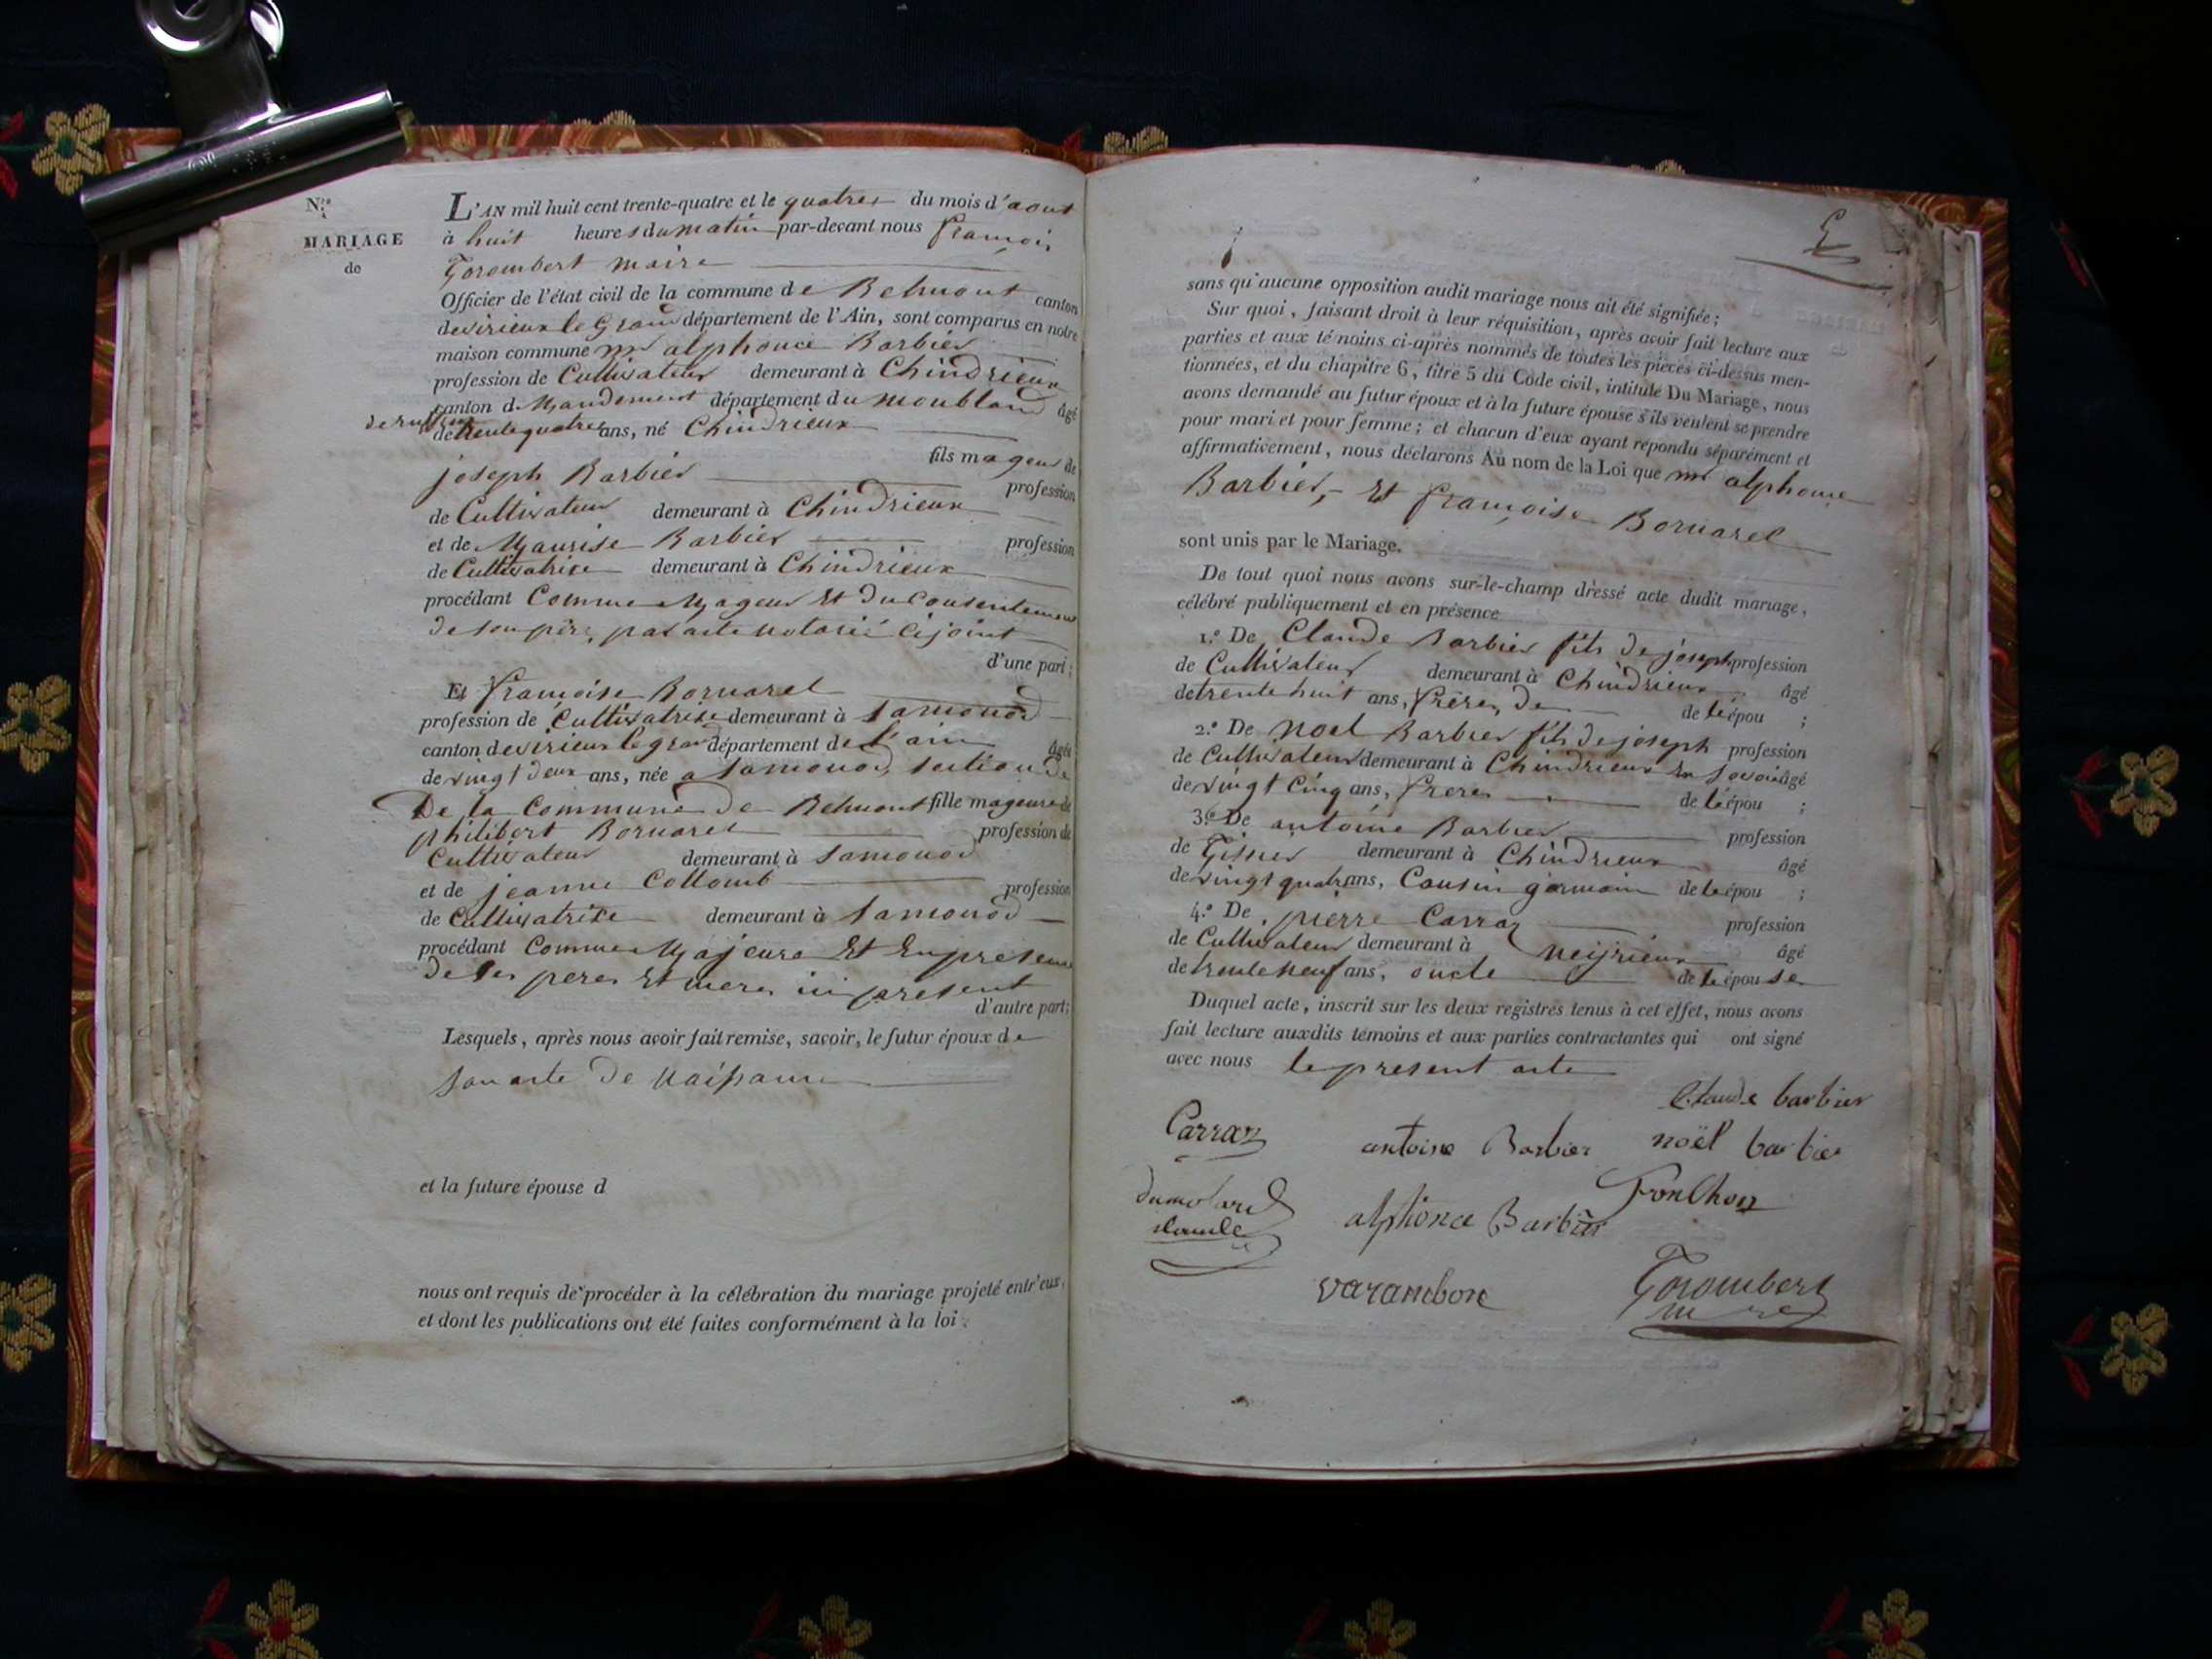 N.ro
MARIAGE
de
L'AN mil huit cent trente-quatre et le quatres du mois d'aout
à huit heures du matin par-devant nous françois
Gorombert maire
Officier de l'état civil de la commune de Belmont canton
de virieux le Grand département de l'Ain, sont comparus en notre
maison commune mr alphonce Barbier
profession de Cultivateur demeurant à Chindrieux
canton de Mandement département du montbland âgé
de ruffieux
de trente quatre ans, né Chindrieux
fils mageur de
joseph Barbier profession
de Cultivateur demeurant à Chindrieux
et de Maurise Barbier profession
de Cultivatrice demeurant à Chindrieux
procédant Comme Mageur Et du Consentement
de son père, par acte notarié Cijoint
d'une part;
Et françoise Bornarel
profession de Cultivatrice demeurant à Samonod
canton de virieux le grand département de l'ain âgée
de vingt deux ans, née a Samonod, section de
De la Commune de Belmont fille mageure de
philibert Bornarel profession de
Cultivateur demeurant à Samonod
et de jeanne Collomb profession
de Cultivatrice demeurant à Samonod
procédant Comme Majeure Et En presence
de ses peres Et meres ici present
d'autre part;
Lesquels, après nous avoir fait remise, savoir, le futur époux de
son acte de naissance
et la future épouse d
nous ont requis de procéder à la célébration du mariage projeté entr'eux,
et dont les publications ont été faites conformément à la loi.
sans qu'aucune opposition audit mariage nous ait été signifiée;
Sur quoi, faisant droit à leur réquisition, après avoir fait lecture aux
parties et aux témoins ci-après nommés de toutes les pièces ci-dessus men-
tionnées, et du chapitre 6, titre 5 du Code civil, intitulé Du Mariage, nous
avons demandé au futur époux et à la future épouse s'ils veulent se prendre
pour mari et pour femme; et chacun d'eux ayant répondu séparément et
affirmativement, nous déclarons Au nom de la Loi que mr alphonce
Barbier, Et françoise Bornarel
sont unis par le Mariage.
De tout quoi nous avons sur-le-champ dressé acte dudit mariage,
célébré publiquement et en présence
1.º De Claude Barbier fils de joseph profession
de Cultivateur demeurant à Chindrieux âgé
de trente huit ans, frères de de l'épou ;
2.º De noel Barbier fils de joseph profession
de Cultivateur demeurant à Chindrieux En Savoie âgé
de vingt cinq ans, freres de l'épou ;
3.º De antoine Barbier profession
de Tisser demeurant à Chindrieux âgé
de vingt quatre ans, Cousin germain de l'épou ;
4.º De pierre Carraz profession
de Cultivateur demeurant à Meijrieux âgé
de trente neuf ans, oncle de l'épouse
Duquel acte, inscrit sur les deux registres tenus à cet effet, nous avons
fait lecture auxdits témoins et aux parties contractantes qui ont signé
avec nous le present acte
Claude barbier
Carraz antoine Barbier noël barbier
dumolard
claude alphonce Barbier
varambon Gorombert
mre